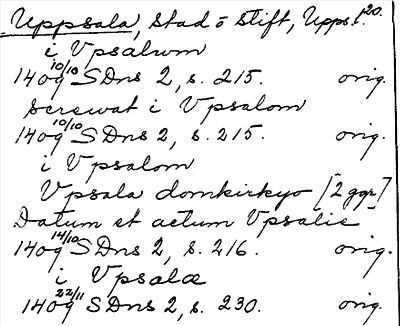 Uppsala, stad ö stift, Upps. l. 20.
i Vpsalum
1409 10/10 SDns 2, s. 215. orig.
screwat i Vpsalom
1409 10/10 SDns 2, s. 215. orig.
i Vpsalom
Vpsala domkirkyo [2 ggr]
Datum et actum Vpsalie
1409 14/10 SDns 2, s. 216. orig.
i Vpsalæ
1409 22/11 SDns 2, s. 230. orig.